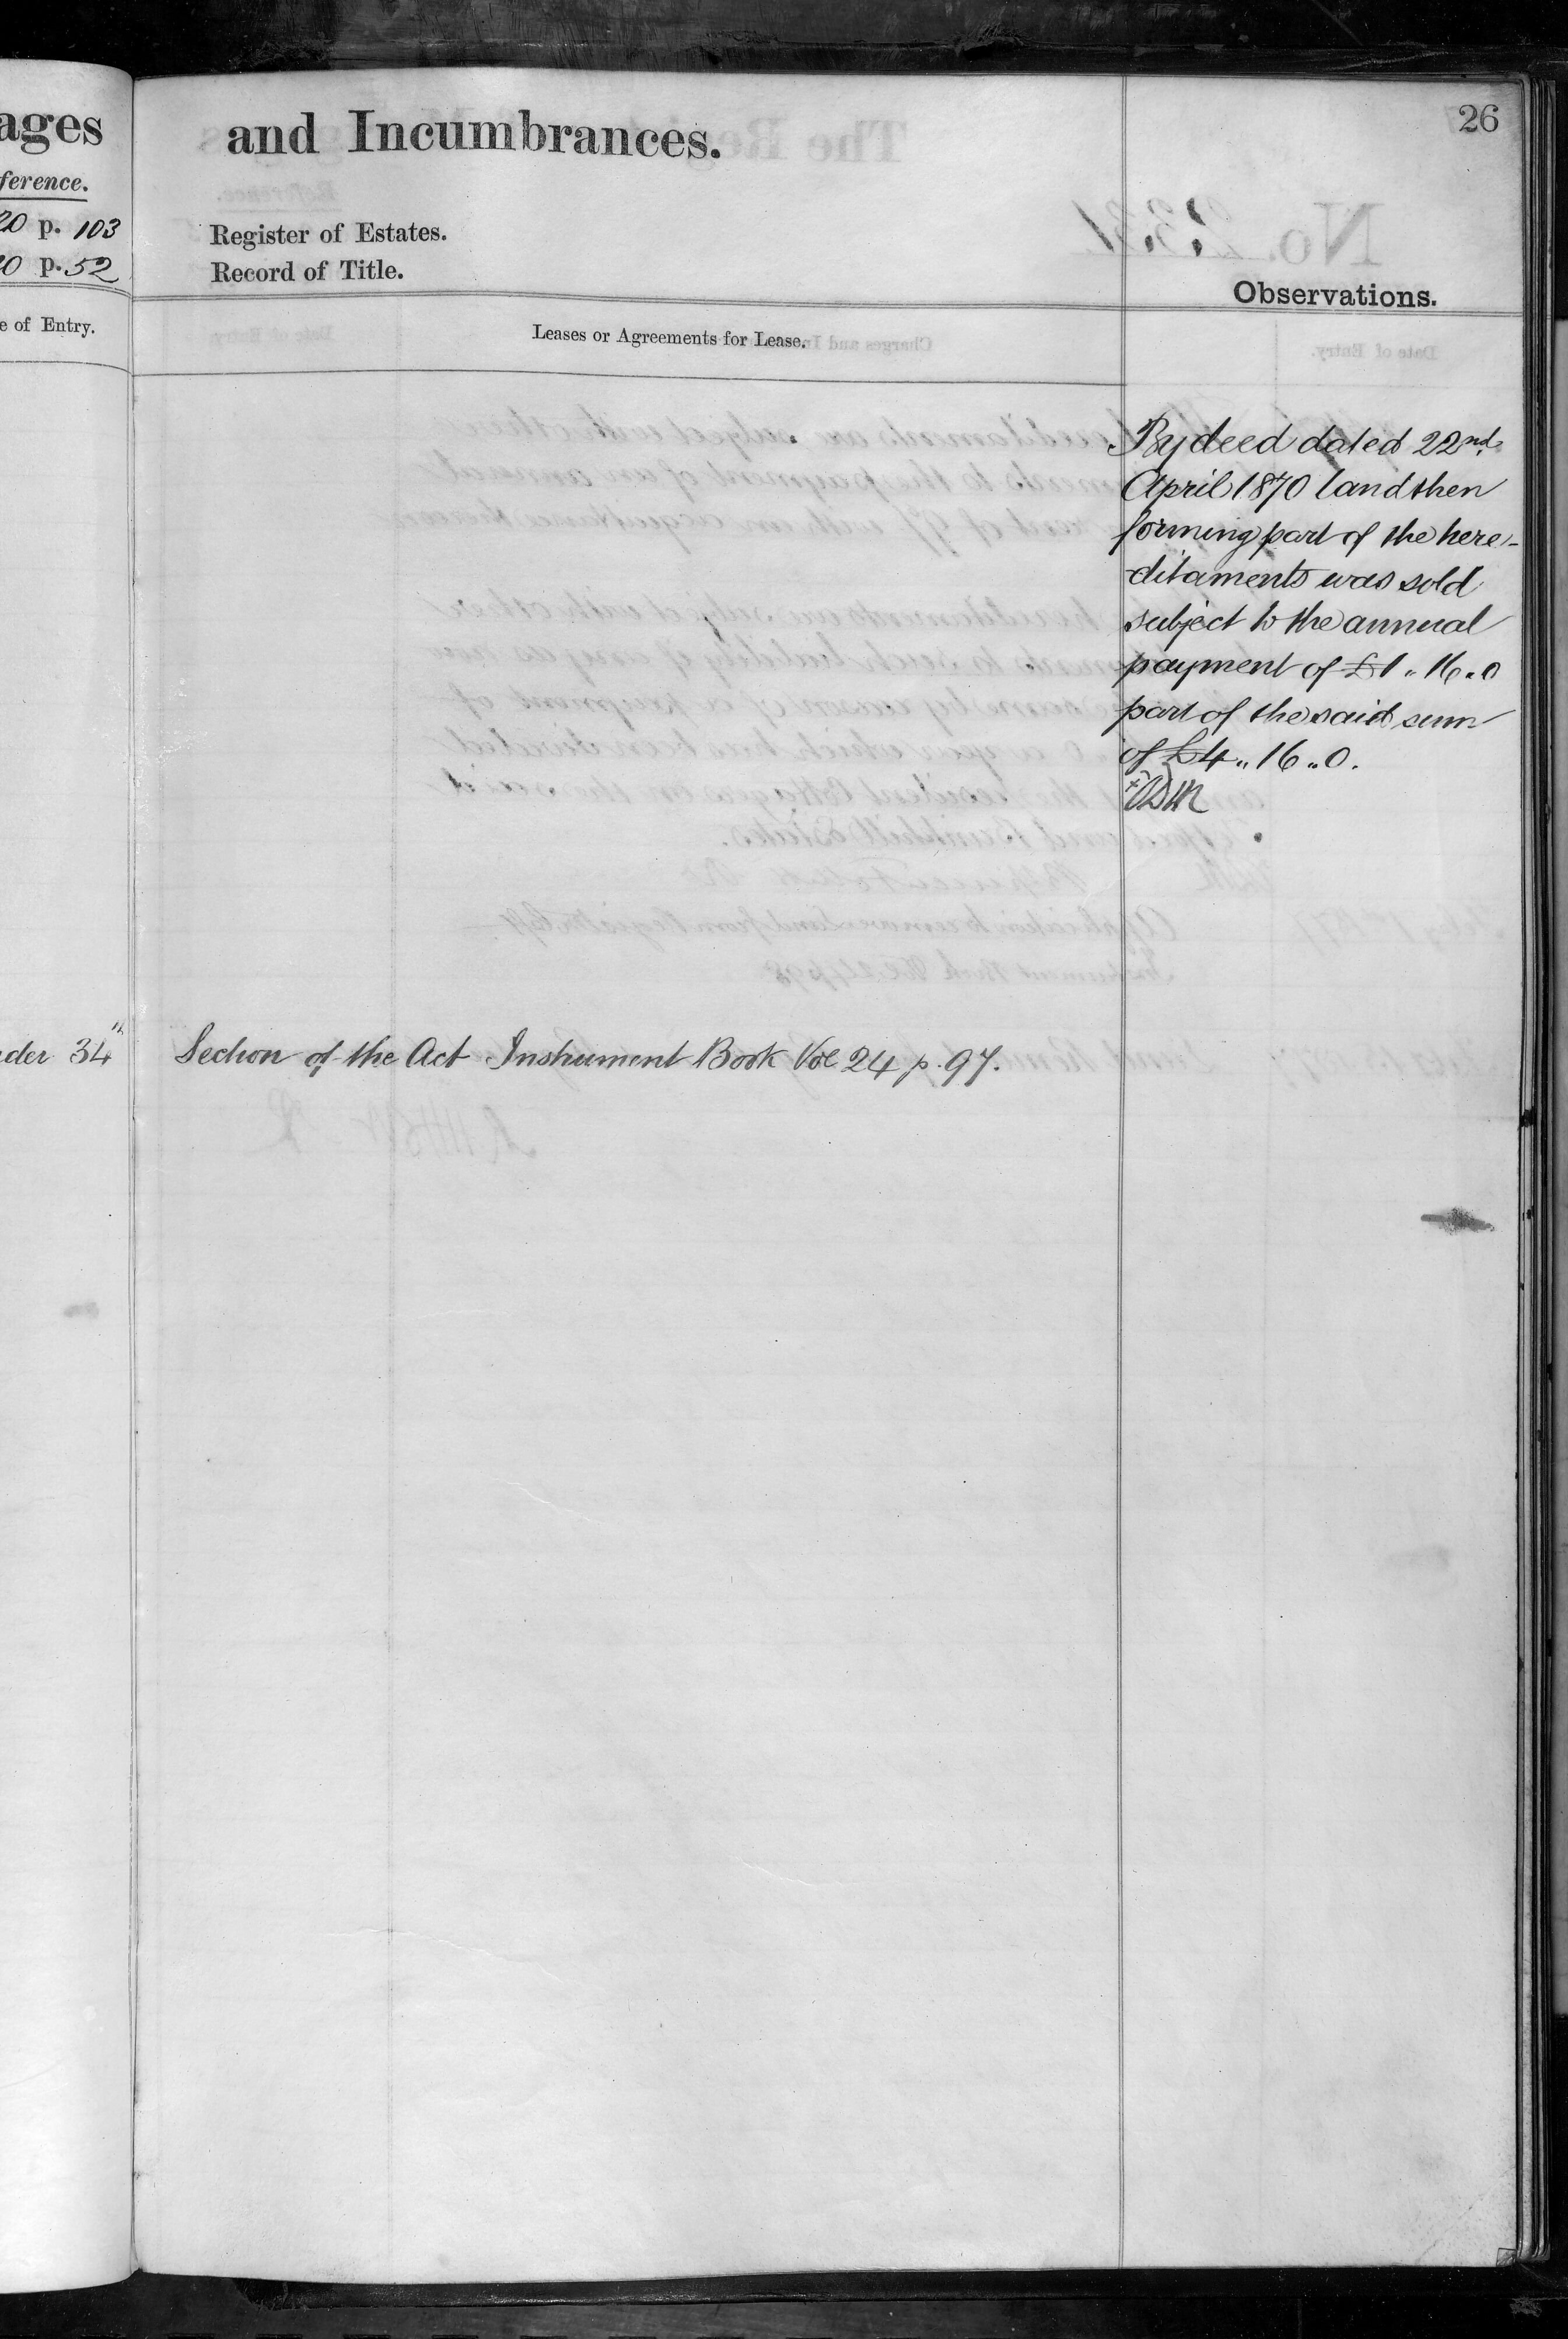 ages
ference.
20 p. 103
0 p. 52
e of Entry.
der 34th
and Incumbrances.
26
Register of Estates.
Record of Title.
Observations.
Leases or Agreements for Lease.
By deed dated 22nd
April 1870 land then
forming part of the here-
ditaments was sold
subject to the annual
payment of £1 " 16 " 0
part of the said sum
of £4 " 16 " 0.
Section of the Act Instrument Book Vol 24 p. 97.